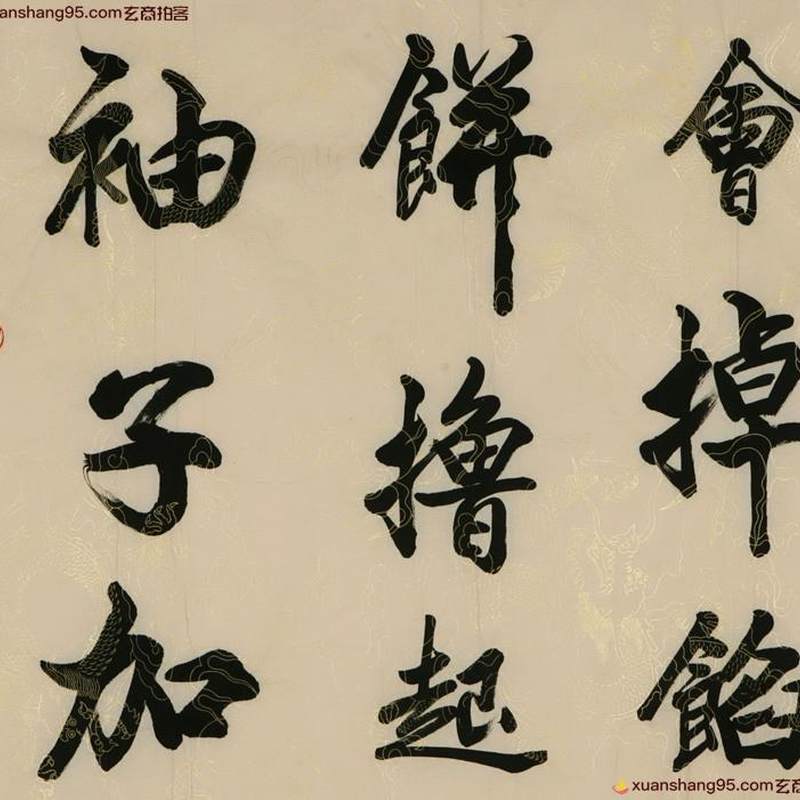 會掉餡
餅擼起
袖子加
anshang95.com玄商拍客
xuanshang95.com玄商